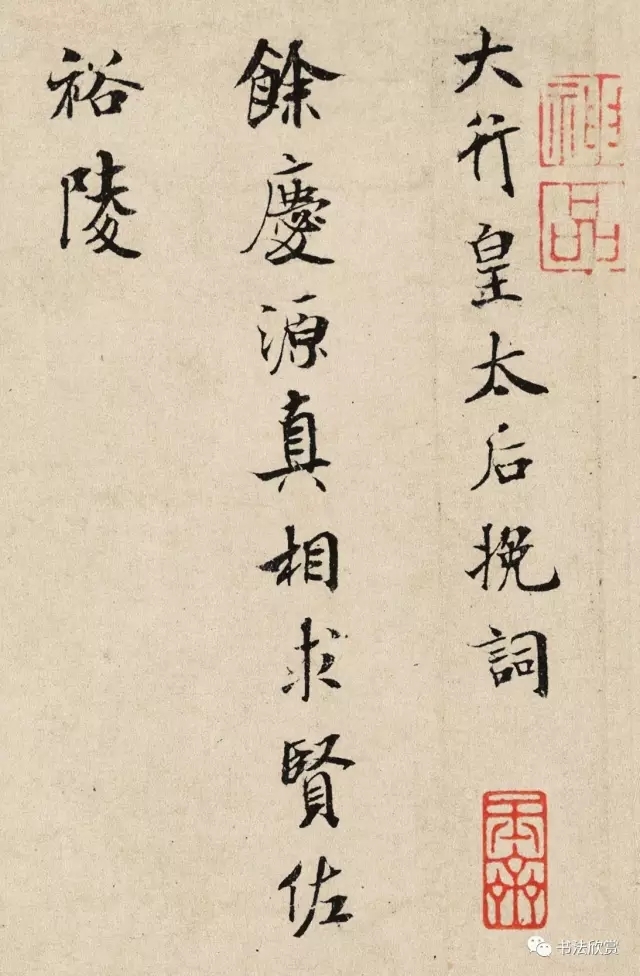 大行皇太后挽詞
餘慶源真相求賢佐
裕陵
神品
书法欣赏